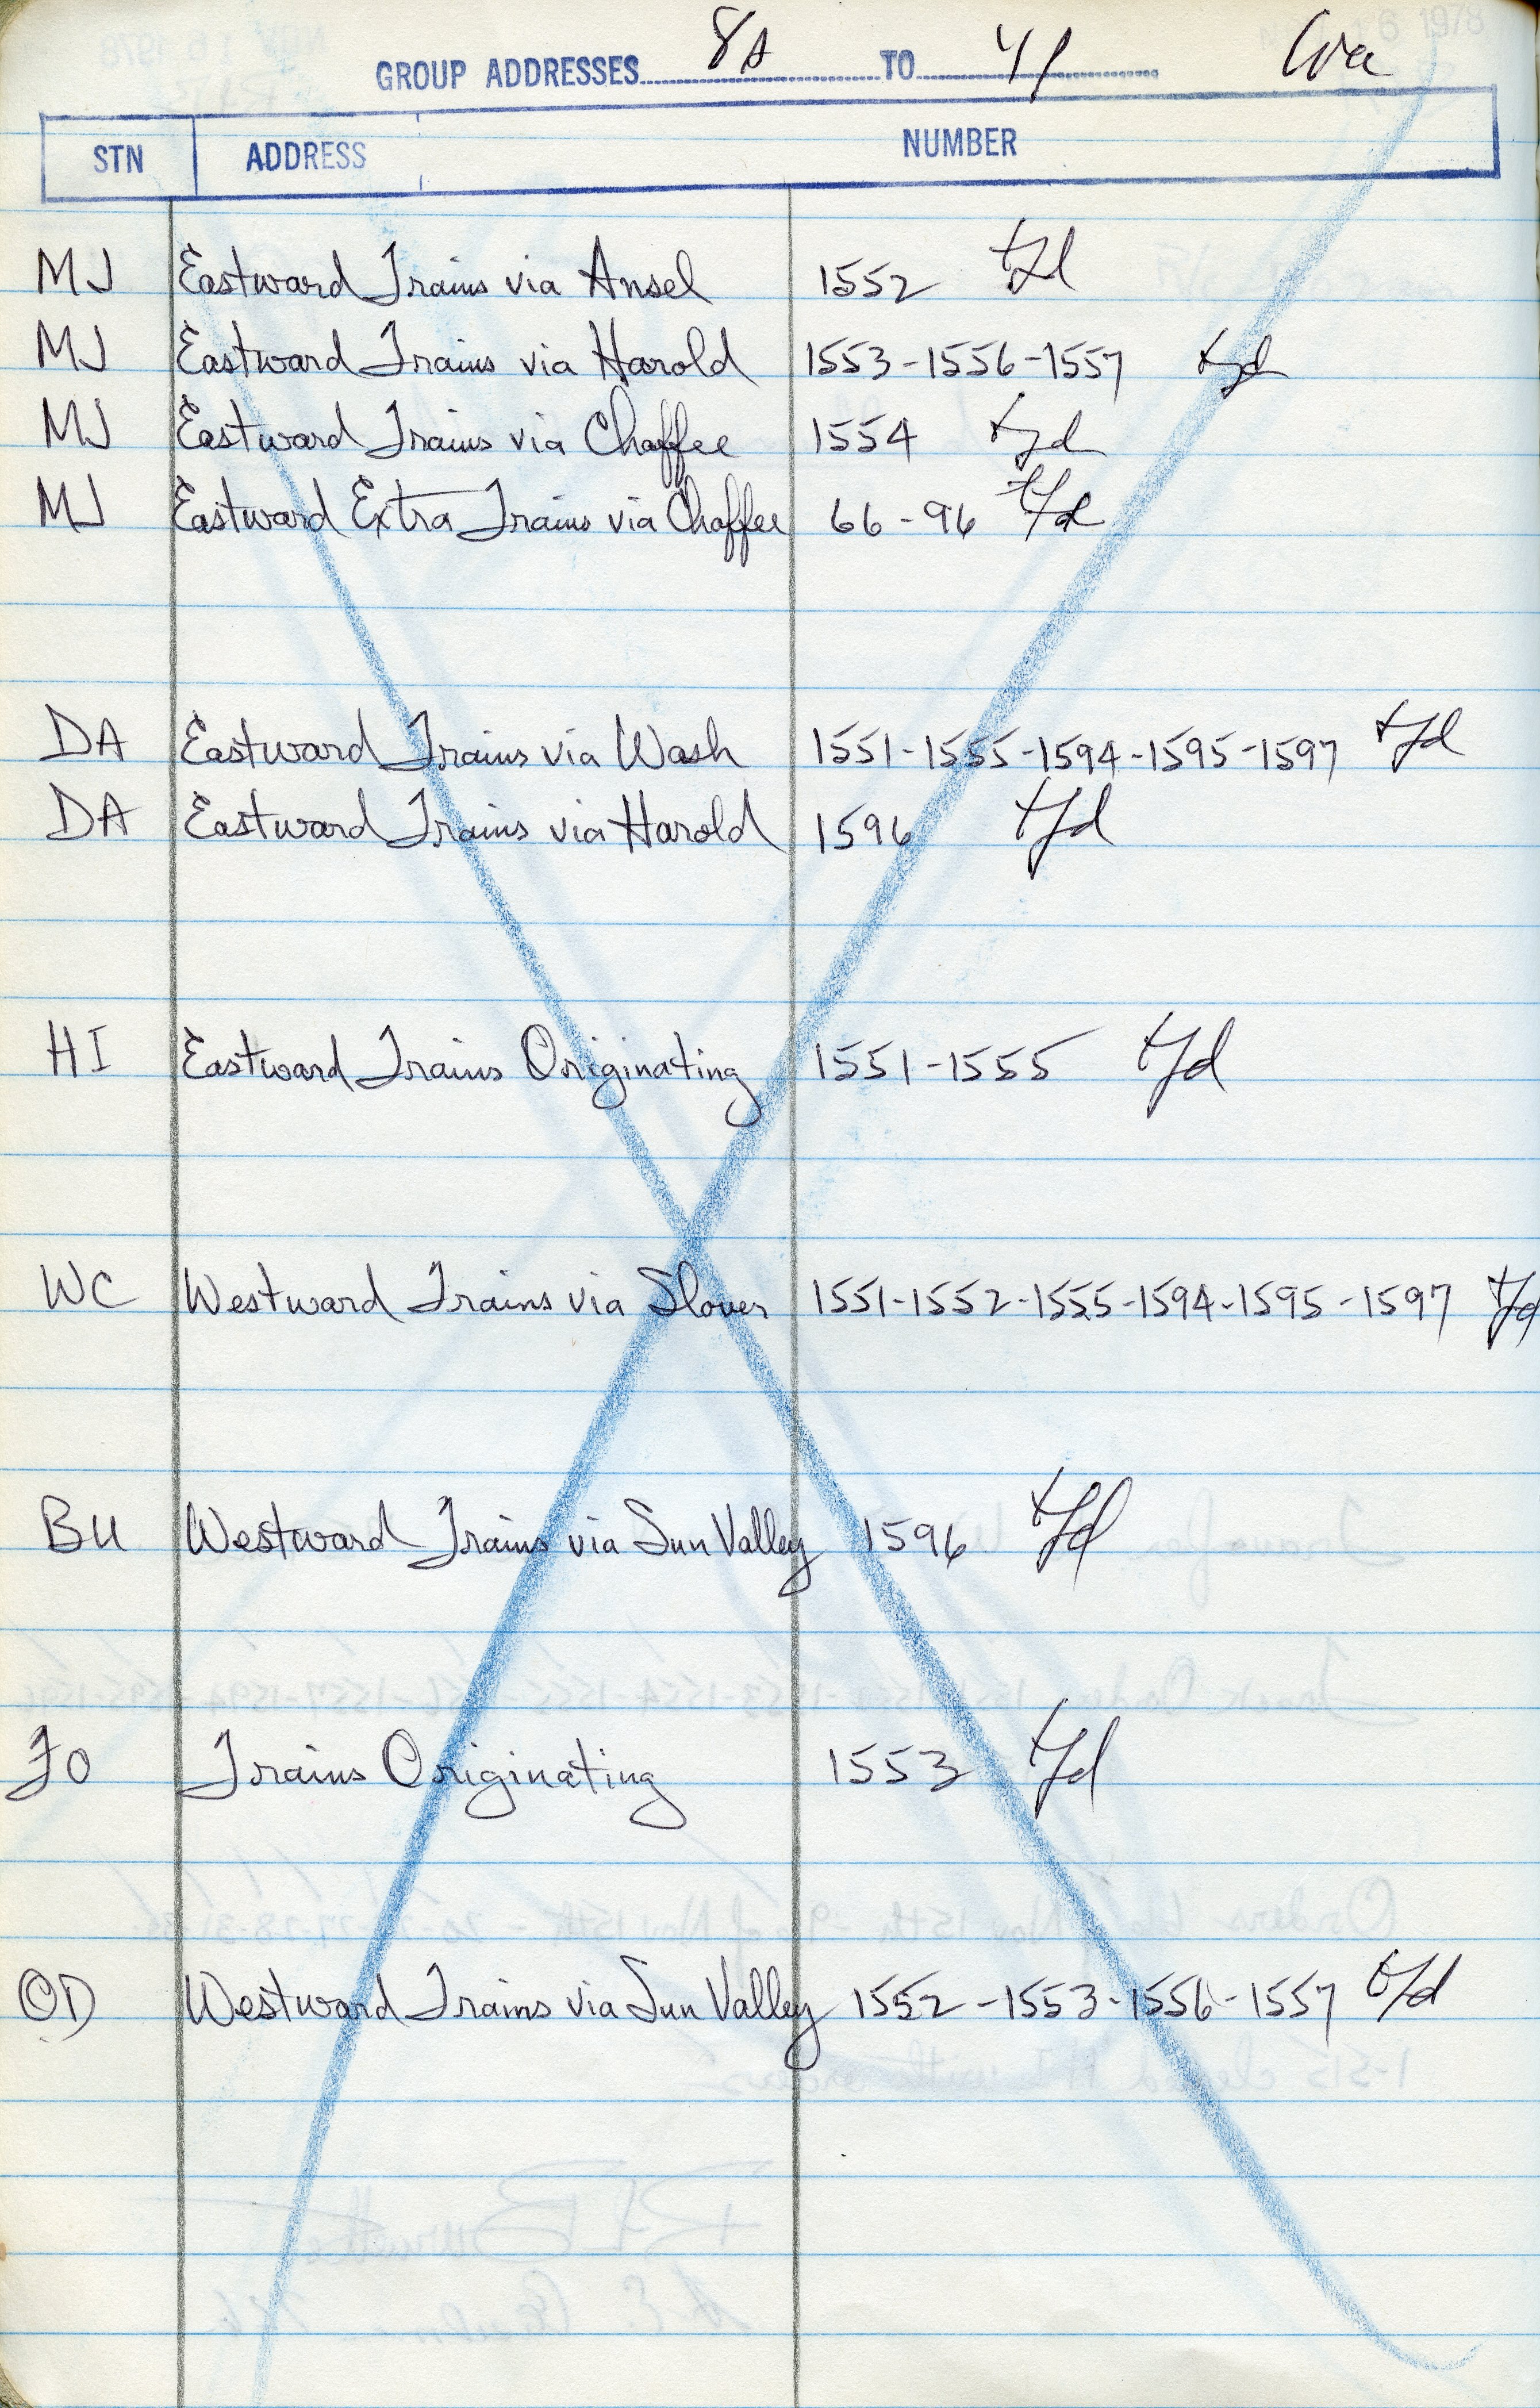 NOV 16 1978
GROUP ADDRESSES 8A TO 41
STN ADDRESS NUMBER
MJ Eastward Trains via Ansel 1552 tfd
MJ Eastward Trains via Harold 1553-1556-1557 tfd
MJ Eastward Trains via Chaffee 1554 tfd
MJ Eastward Extra Trains via Chaffee 66-96 tfd
DA Eastward Trains via Wash 1551-1555-1594-1595-1597 tfd
DA Eastward Trains via Harold 1596 tfd
HI Eastward Trains Originating 1551-1555 tfd
WC Westward Trains via Slover 1551-1552-1555-1594-1595-1597 tfd
BU Westward Trains via Sun Valley 1596 tfd
FO Trains Originating 1553 tfd
OD Westward Trains via Sun Valley 1552-1553-1556-1557 tfd